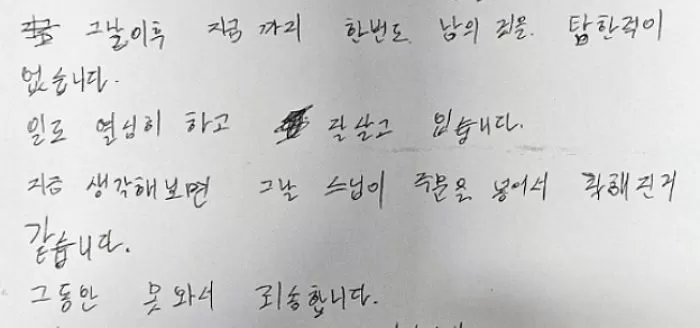 그날이후 지금 까지 한번도 남의 것을 탐한적이
없습니다.
일도 열심히 하고 잘살고 있습니다.
지금 생각해보면 그날 스님이 주문을 넣어서 착해진거
같습니다.
그동안 못와서 죄송합니다.